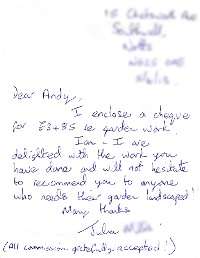 Dear Andy,
I enclose a cheque
for £3485 ie garden work.
Ian & I are
delighted with the work you
have done and will not hesitate
to recommend you to anyone
who needs their garden landscaped!
Many thanks
Julia
(All commission gratefully accepted!)